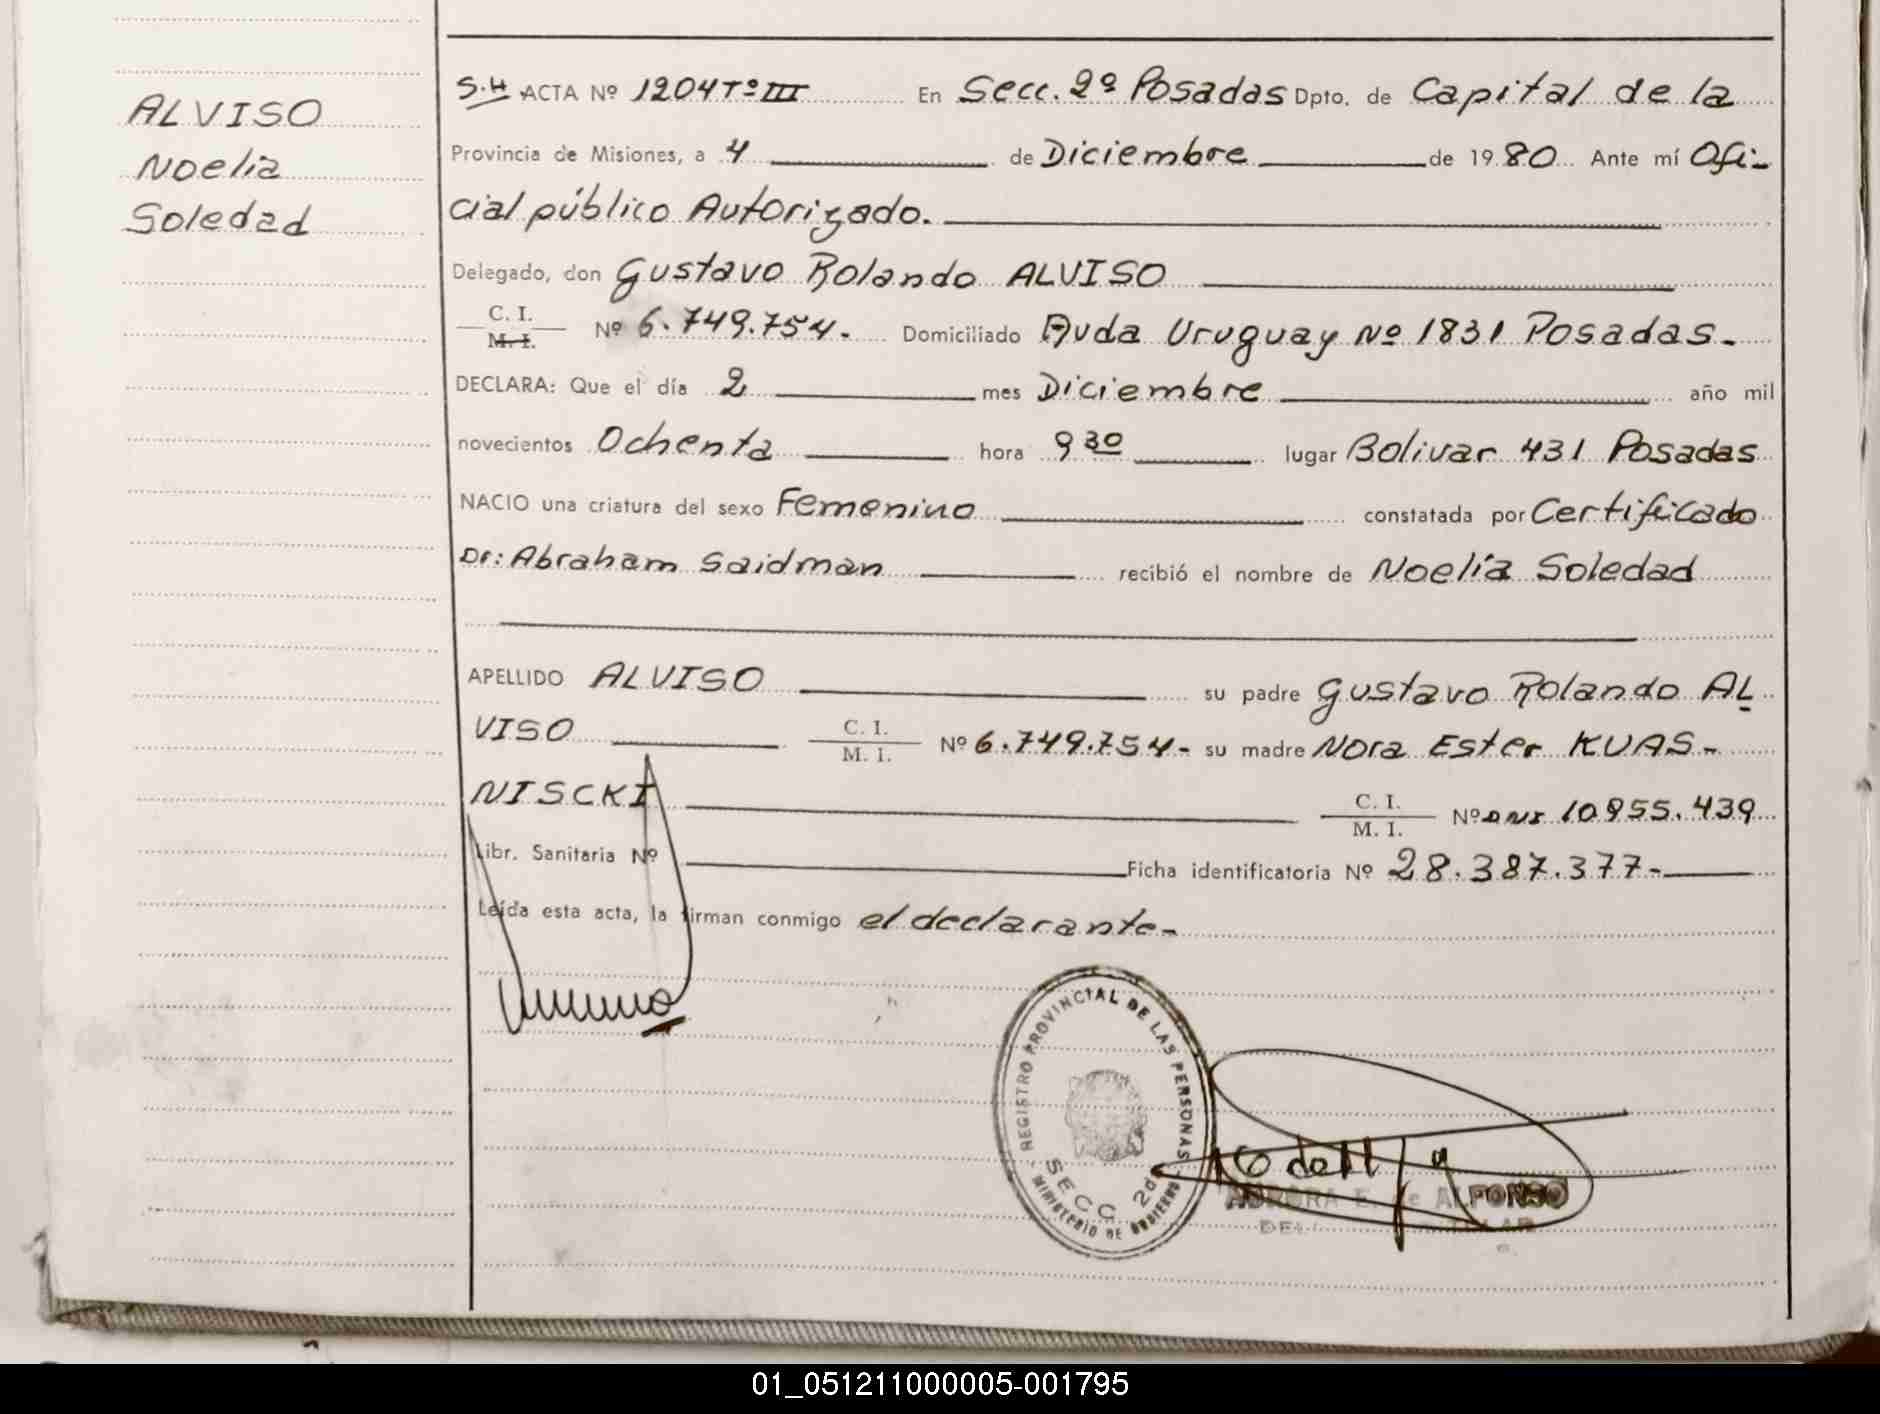 ALVISO
Noelia
Soledad
S.H ACTA Nº 1204 Tº III En Secc. 2º Posadas Dpto. de Capital de la
Provincia de Misiones, a 4 de Diciembre de 1980 Ante mí Ofi-
cial público Autorizado.
Delegado, don Gustavo Rolando ALVISO
C. I. M. I. Nº 6.749.754.- Domiciliado Avda Uruguay Nº 1831 Posadas.-
DECLARA: Que el día 2 mes Diciembre año mil
novecientos Ochenta hora 9 30 lugar Bolivar 431 Posadas
NACIO una criatura del sexo Femenino constatada por Certificado
Dr: Abraham Saidman recibió el nombre de Noelía Soledad
APELLIDO ALVISO su padre Gustavo Rolando AL
VISO C. I. M. I. Nº 6.749.754- su madre Nora Ester KUAS-
NISCKI C. I. M. I. Nº DNI 10.955.439
Libr. Sanitaria Nº Ficha identificatoria Nº 28.387.377-
Leída esta acta, la firman conmigo el declarante-
REGISTRO PROVINCIAL DE LAS PERSONAS
SECC. 2da
MINISTERIO DE GOBIERNO
AURORA E. de ALFONSO
01_051211000005-001795